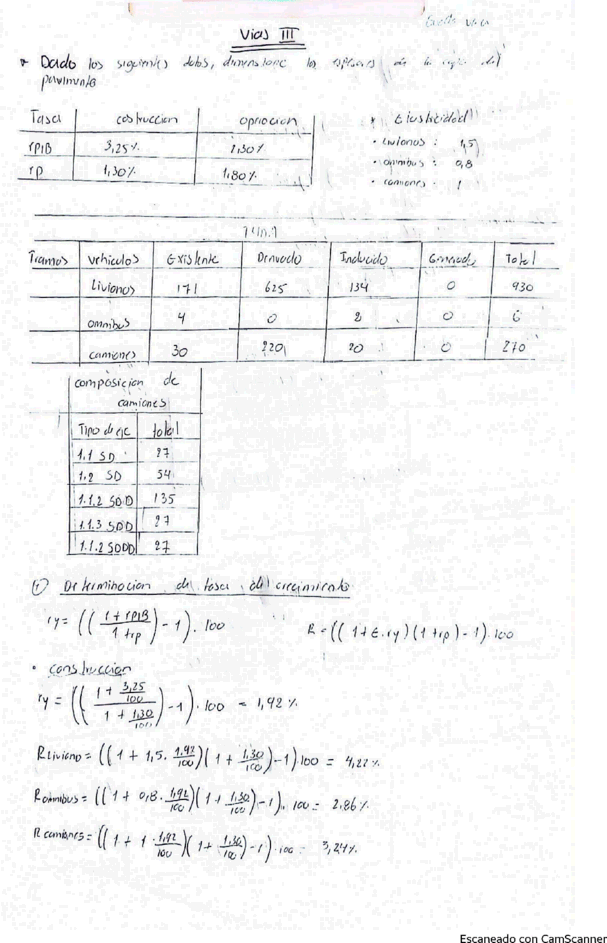 Vias III
* Dado los siguientes datos, dimensione los espesores de la capa del
pavimento
Tasa costruccion opriacion
rPIB 3,25% 1,30%
rp 1,30% 1,80%
* Elasticidad
• Livianos : 1,5
• omnibus : 0,8
• camiones : 1
Tramos vehiculos Existente Derivado Inducido Generado Total
Livianos 171 625 134 0 930
omnibus 4 0 2 0 6
camiones 30 220 20 0 270
composicion de
camiones
Tipo de eje total
1.1 SD 27
1.2 SD 54
1.1.2 SDD 135
1.1.3 SDD 27
1.1.2 SDDD 27
① Determinacion de tasa de crecimiento
ry = ((1+rPIB / 1+rp) - 1) . 100 R = ((1+E.ry)(1+rp)-1).100
• construccion
ry = ((1 + 3,25/100 / 1 + 1,30/100) - 1) . 100 = 1,92 %
R Liviano = ((1 + 1,5 . 1,92/100)(1 + 1,30/100) - 1).100 = 4,22%
R omnibus = ((1 + 0,8 . 1,92/100)(1 + 1,30/100) - 1). 100 = 2,86%
R camiones = ((1 + 1 . 1,92/100)(1 + 1,30/100) - 1) . 100 = 3,24%
Escaneado con CamScanner